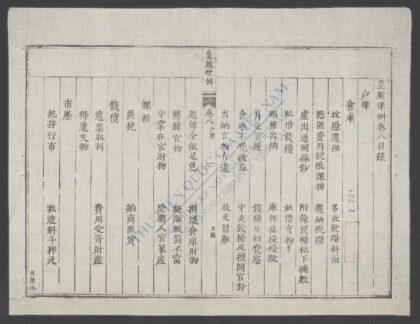 皇越律例卷八目錄
戶律
倉庫
收糧違限 多收稅糧斛面
隱匿費用稅糧課物 攬納稅糧
虛出通關硃鈔 附餘錢糧私下補數
私借錢糧 私借官物
那移出納 庫秤雇役侵欺
冒支官糧 錢糧互相覺察
倉庫不覺被盜 守支錢糧及擅開官封
出納官物有違 收支留難
皇越律例 卷八 目錄
起解金銀足色 損壞倉庫財物
轉解官物 擬斷贓罰不當
守掌在官財物 隱瞞入官家產
課程
匿稅 舶商匿貨
錢債
違禁取利 費用受寄財產
得遺失物
市廛
把持行市 私造斛斗秤尺